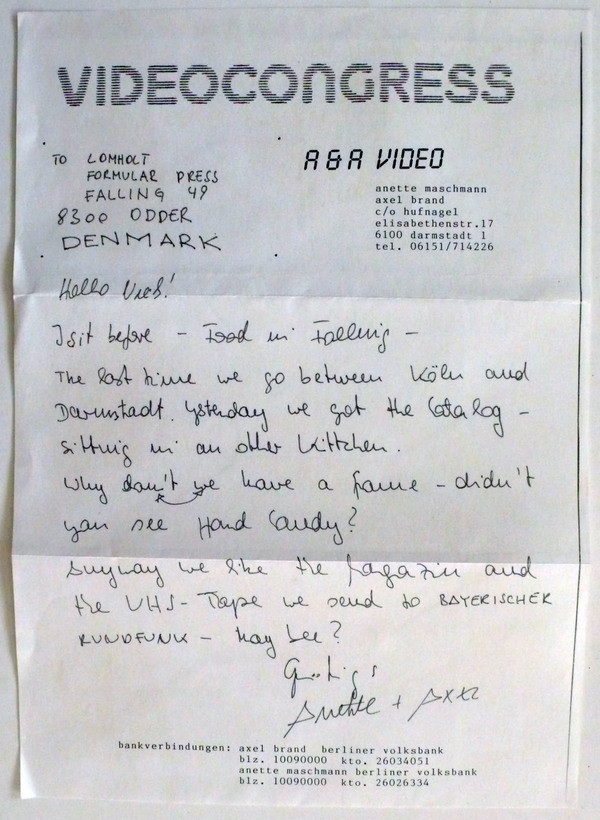 VIDEOCONGRESS
TO LOMHOLT
FORMULAR PRESS
FALLING 49
8300 ODDER
DENMARK
A & A VIDEO
anette maschmann
axel brand
c/o hufnagel
elisabethenstr.17
6100 darmstadt 1
tel. 06151/714226
Hallo
I sit before - Food in Falling -
The last time we go between Köln and
Darmstadt. Yesterday we got the Catalog -
sitting in an other Kittchen.
Why don't we have a - didn't
you see Hand Candy?
Anyway we like the and
the VHS-Tape we send to BAYERISCHER
RUNDFUNK - May bee?
Greetings
Anette + Axel
bankverbindungen: axel brand berliner volksbank
blz. 10090000 kto. 26034051
anette maschmann berliner volksbank
blz. 10090000 kto. 26026334